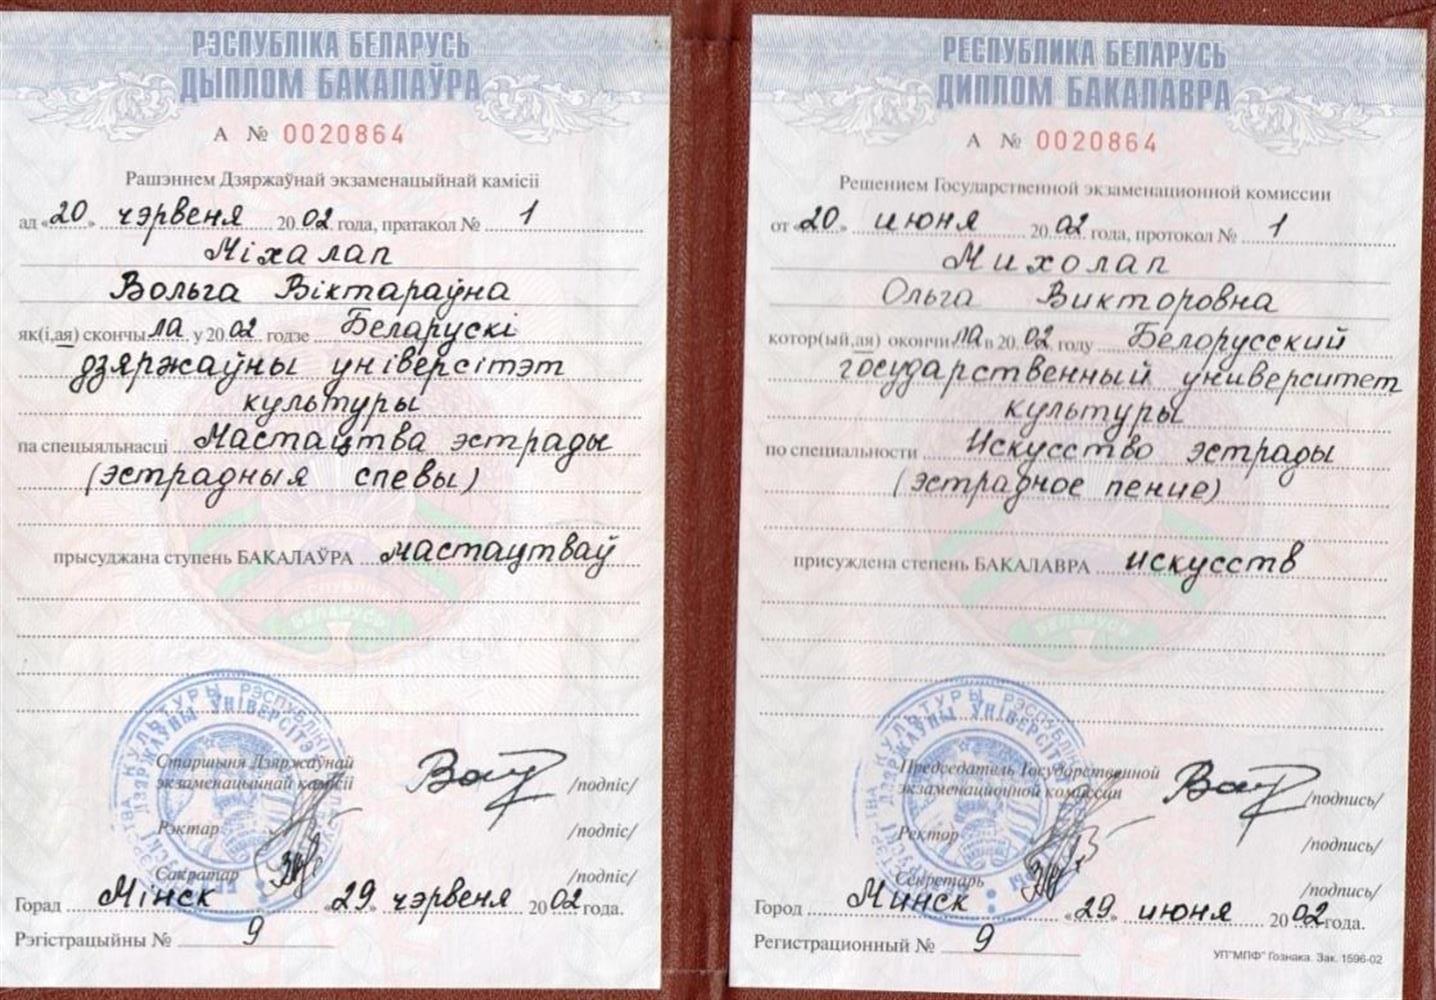 РЭСПУБЛІКА БЕЛАРУСЬ
ДЫПЛОМ БАКАЛАЎРА
А № 0020864
Рашэннем Дзяржаўнай экзаменацыйнай камісіі
ад «20» чэрвеня 2002 года, пратакол № 1
Міхалап
Вольга Віктараўна
як(і,ая) скончыла у 2002 годзе Беларускі
дзяржаўны універсітэт
культуры
па спецыяльнасці Мастацтва эстрады
(эстрадныя спевы)
прысуджана ступень БАКАЛАЎРА мастацтваў
БЕЛАРУСЬ
Старшыня Дзяржаўнай
экзаменацыйнай камісіі /подпіс/
Рэктар /подпіс/
Сакратар /подпіс/
Горад Мінск «29» чэрвеня 2002 года.
Рэгістрацыйны № 9
РЕСПУБЛИКА БЕЛАРУСЬ
ДИПЛОМ БАКАЛАВРА
А № 0020864
Решением Государственной экзаменационной комиссии
от «20» июня 2002 года, протокол № 1
Михолап
Ольга Викторовна
котор(ый,ая) окончила в 2002 году Белорусский
государственный университет
культуры
по специальности Искусство эстрады
(эстрадное пение)
присуждена степень БАКАЛАВРА искусств
БЕЛАРУСЬ
Председатель Государственной
экзаменационной комиссии /подпись/
Ректор /подпись/
Секретарь /подпись/
Город Минск «29» июня 2002 года.
Регистрационный № 9
УП"МПФ" Гознака. Зак. 1596-02